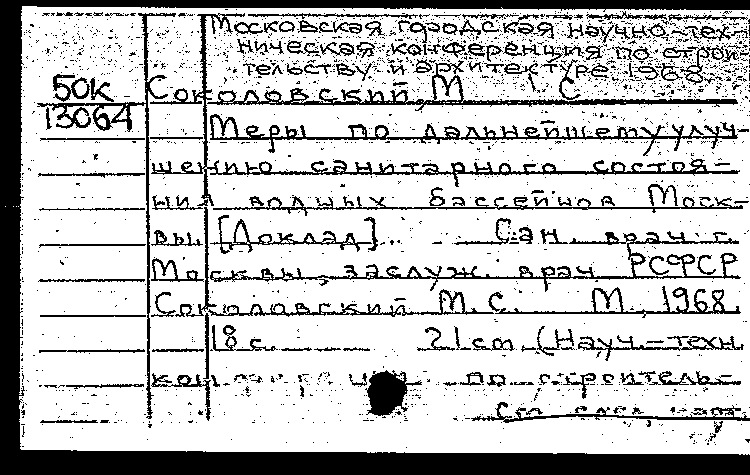 Московская городская научно-тех-
ническая конференция по строи-
тельству и архитектуре 1968.
50к Соколовский, М С
13064 Меры по дальнейшему улуч-
шению санитарного состоя-
ния водных бассейнов Моск-
вы. [Доклад]. Сан. врач г.
Москвы, заслуж. врач РСФСР
Соколовский М.С. М., 1968.
18 с. 21 см. (Науч.-техн.
по строитель-
См след карт.